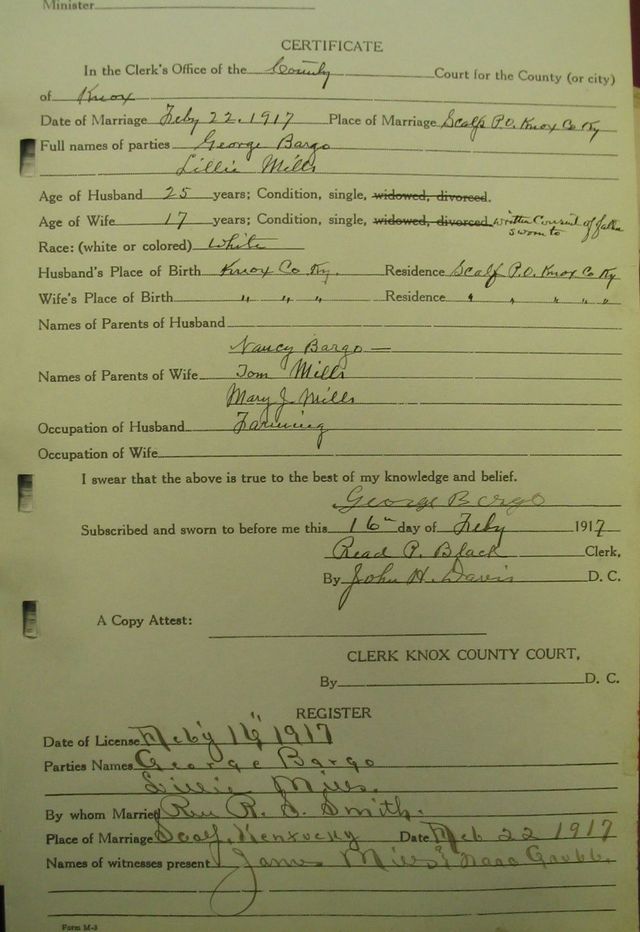 Minister
CERTIFICATE
In the Clerk's Office of the County Court for the County (or city)
of Knox
Date of Marriage Feby 22, 1917 Place of Marriage Scalf P.O. Knox Co Ky
Full names of parties George Bargo
Lillie Mills
Age of Husband 25 years; Condition, single, widowed, divorced.
Age of Wife 17 years; Condition, single, widowed, divorced written Consent of father
sworn to
Race: (white or colored) white
Husband's Place of Birth Knox Co Ky. Residence Scalf P.O. Knox Co Ky
Wife's Place of Birth " " " Residence " " " " "
Names of Parents of Husband
Nancy Bargo —
Names of Parents of Wife Tom Mills
Mary J. Mills
Occupation of Husband Farming
Occupation of Wife
I swear that the above is true to the best of my knowledge and belief.
George Bargo
Subscribed and sworn to before me this 16" day of Feby 1917
Read P. Black Clerk,
By John H. Davis D. C.
A Copy Attest:
CLERK KNOX COUNTY COURT,
By D. C.
REGISTER
Date of License Feby 16, 1917
Parties Names George Bargo
Lillie Mills.
By whom Married Rev R. Smith.
Place of Marriage Scalf, Kentucky Date Feb 22 1917
Names of witnesses present James Mills & Grubb
Form M-3